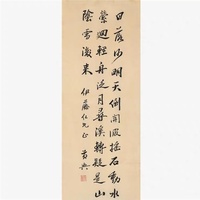 日落沙明天倒開波搖石動水
縈迴輕舟泛月尋溪轉疑是山
陰雪後來 伊藤仁兄正 黃興